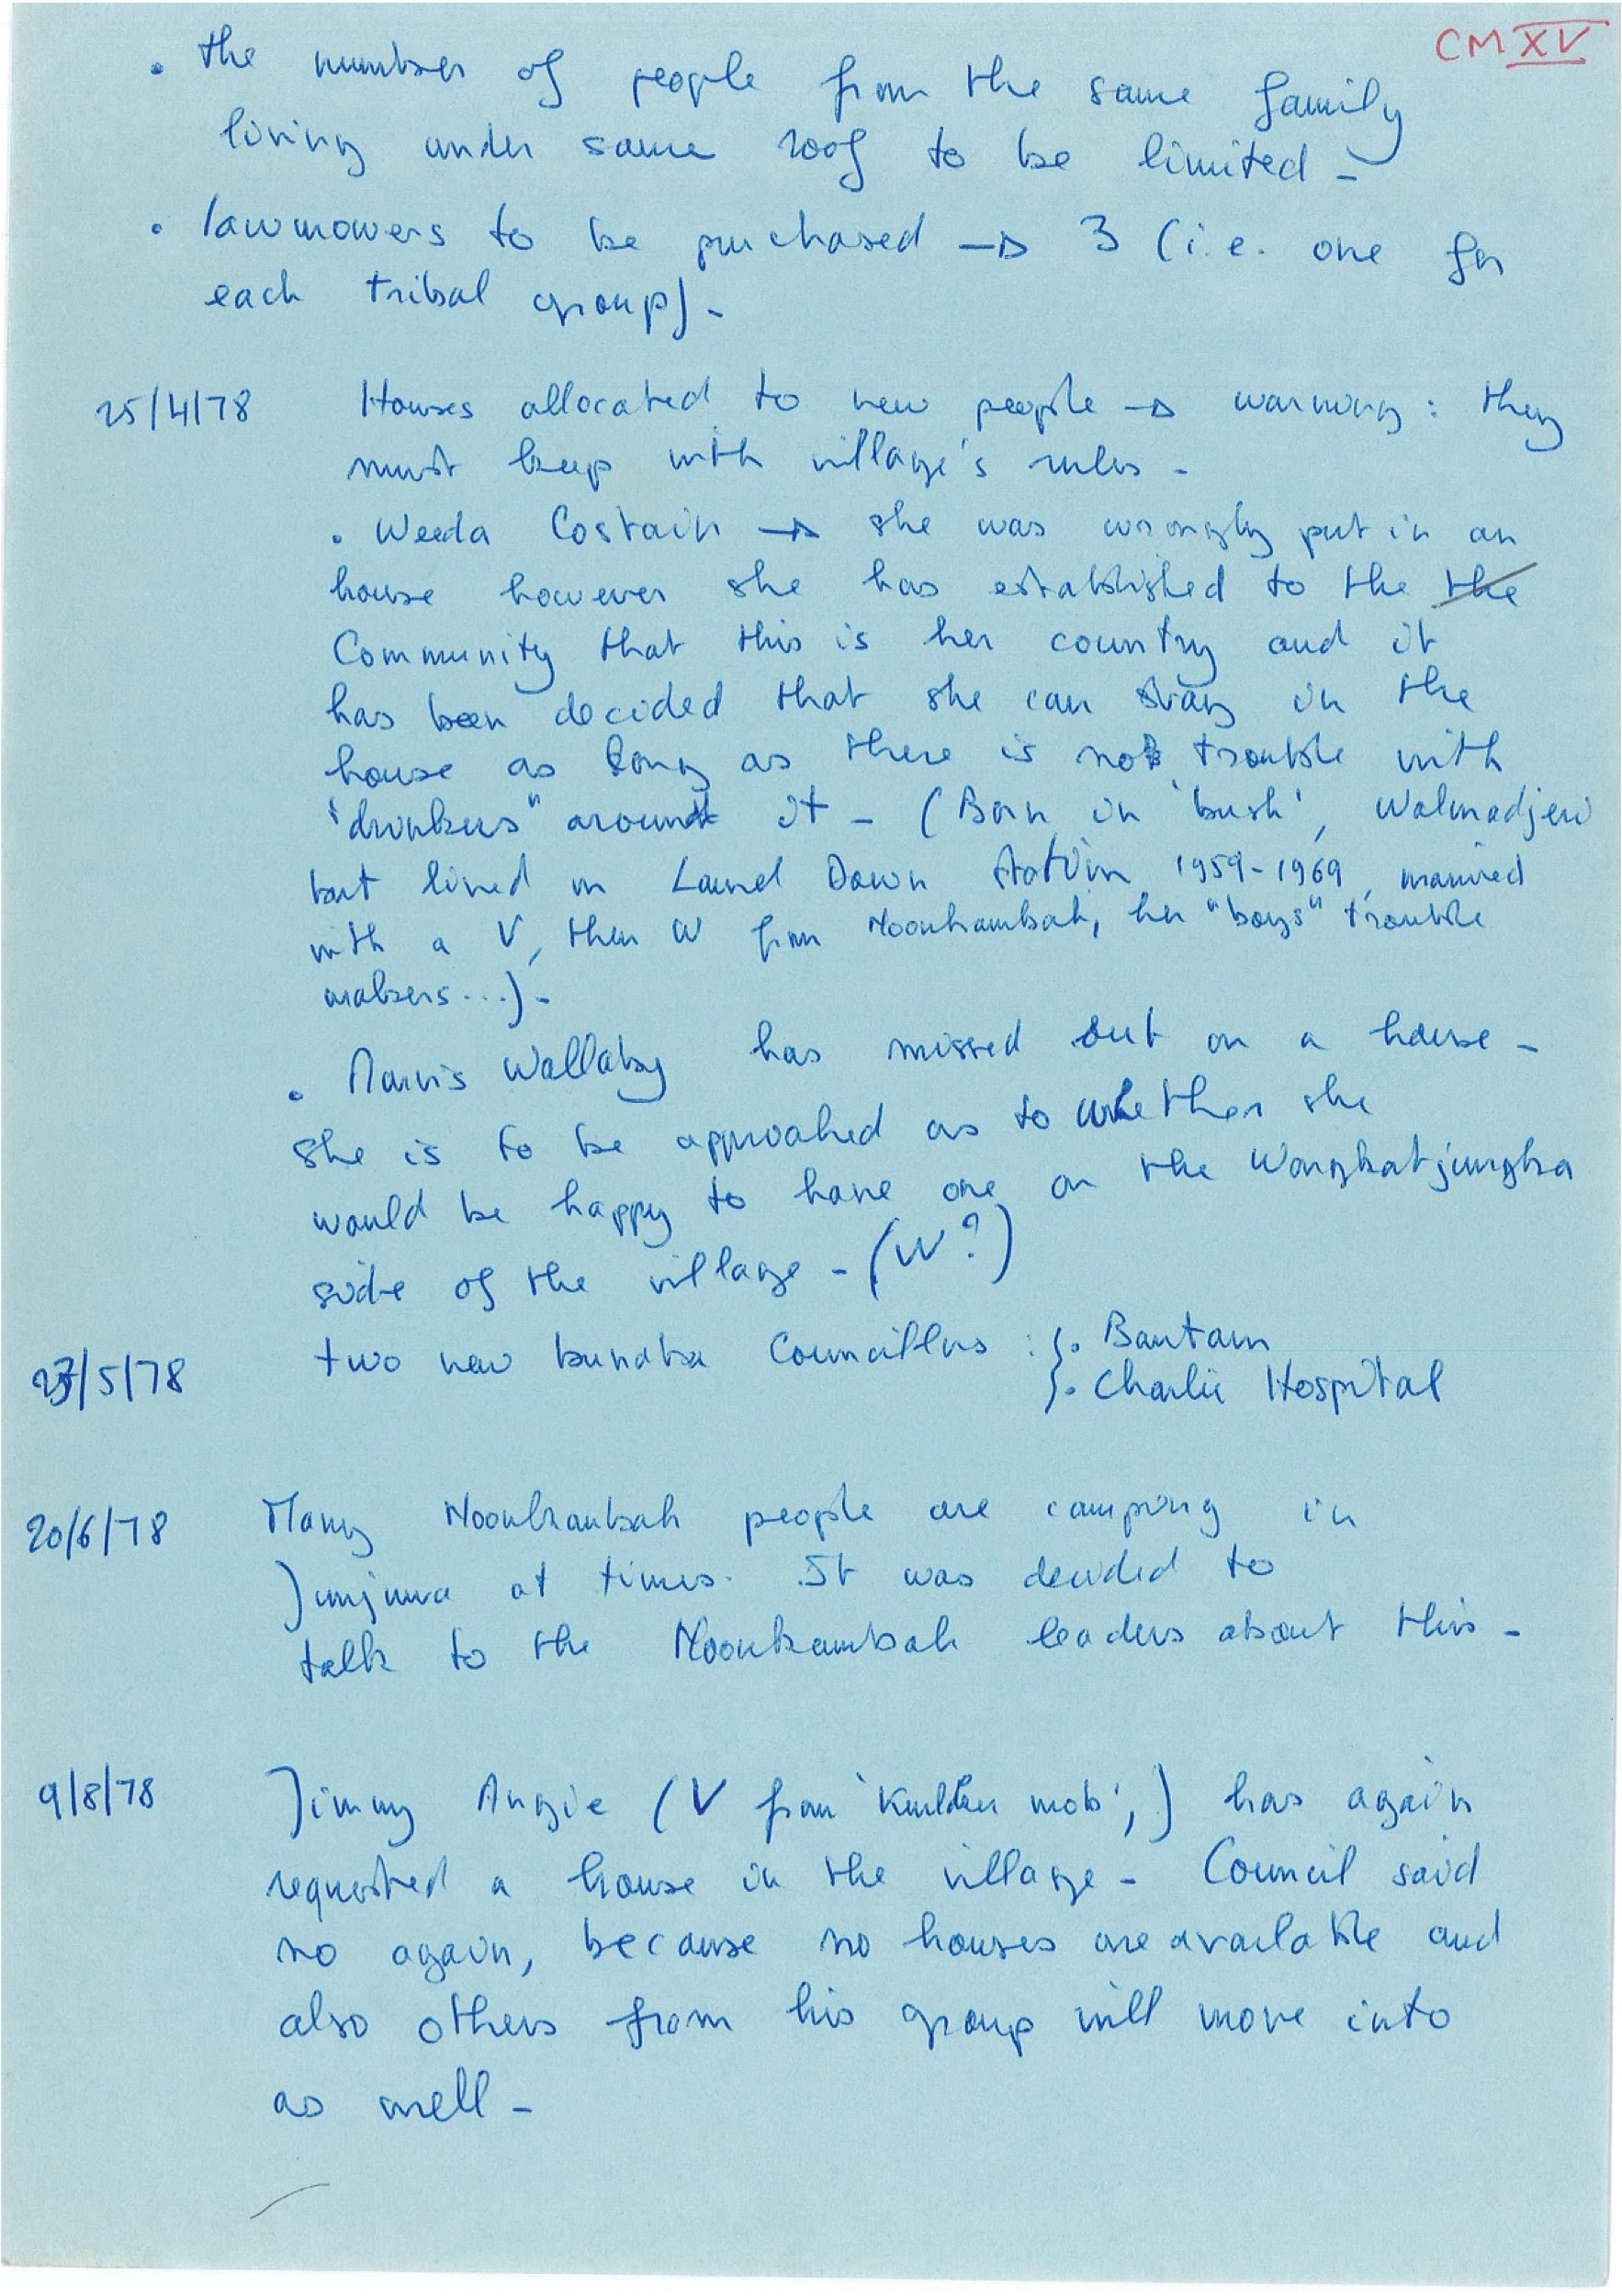 CM XV
• the number of people from the same family
living under same roof to be limited -
• lawmowers to be purchased → 3 (i.e. one for
each tribal group) -
25/4/78 Houses allocated to new people → warning : they
must keep with village's rules -
• Weeda Costain → she was wrongly put in an
house however she has established to the the
Community that this is her country and it
has been decided that she can stay in the
house as long as there is not trouble with
"drunkers" around it - (Born in 'bush', Walmadjeri
but lived on Laurel Down Station 1959-1969, married
with a V, then W from Noonkambah, her "boys" trouble
makers...) -
• Mavis Wallaby has missed out on a house -
she is to be approached as to whether she
would be happy to have one on the Wangkatjungka
side of the village - (W?)
23/5/78 two new bunaba Councillors : • Bantam
• Charlie Hospital
20/6/78 Many Noonkambah people are camping in
Junjuwa at times. It was decided to
talk to the Noonkambah leaders about this -
9/8/78 Jimmy Angie (V from 'mob',) has again
requested a house in the village - Council said
no again, because no houses are available and
also others from his group will move into
as well -